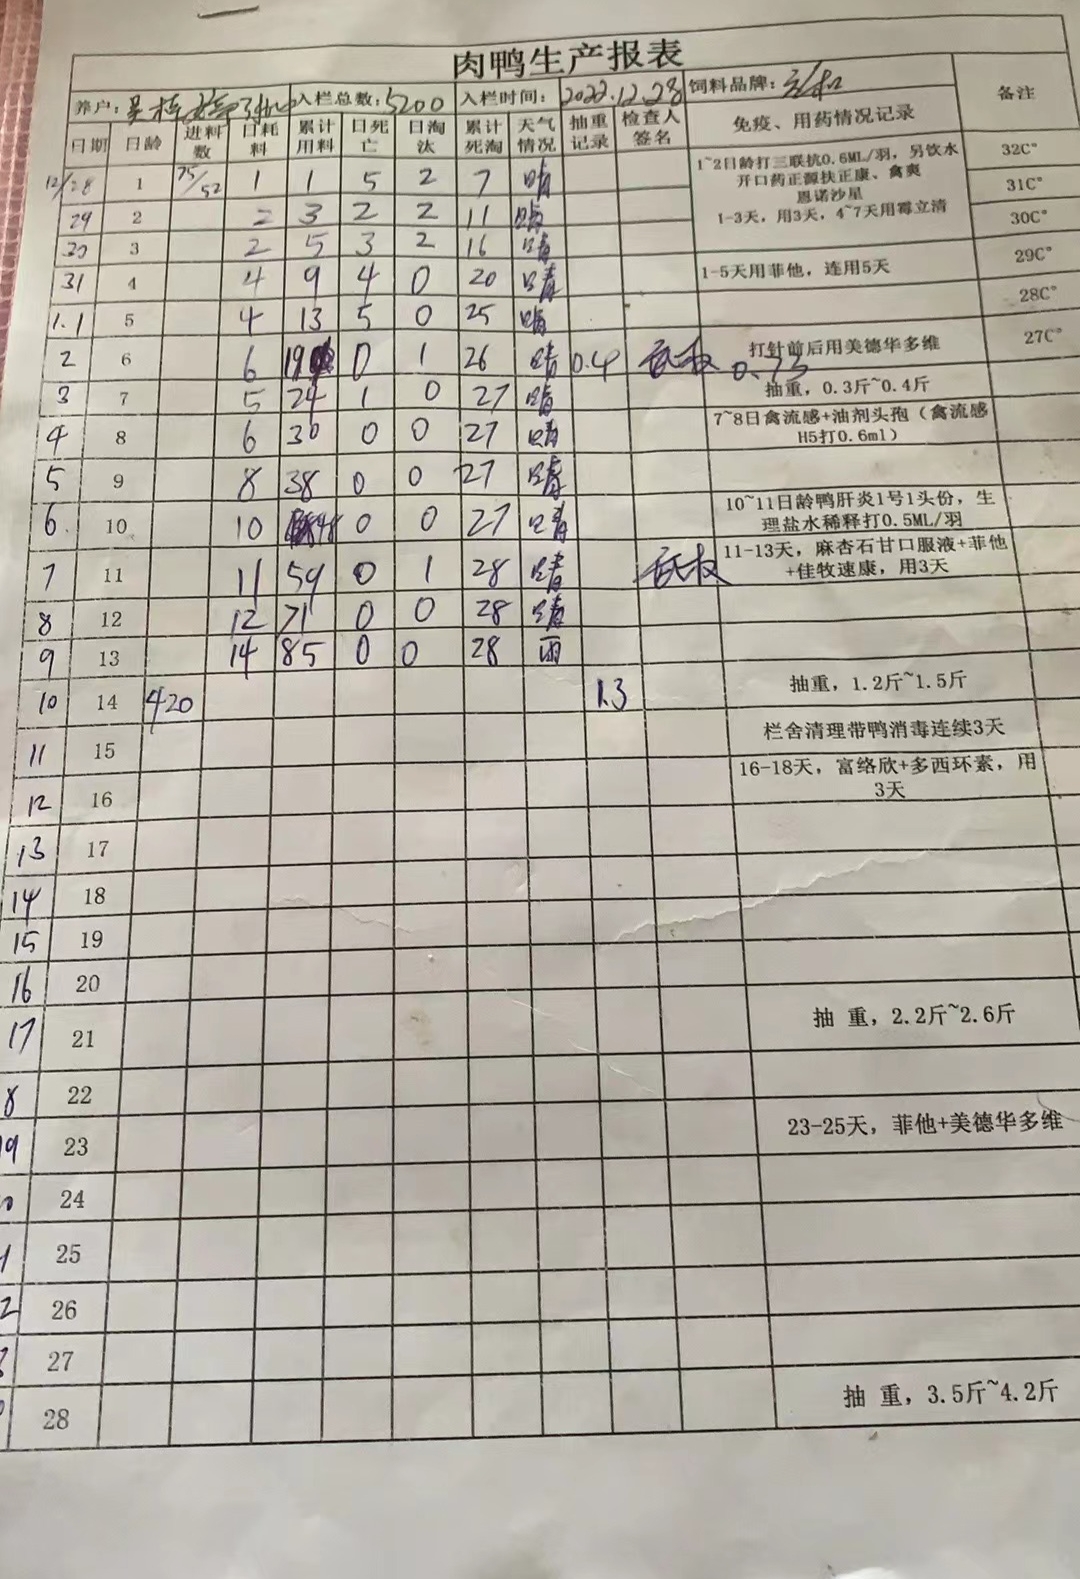 肉鸭生产报表
养户： 入栏总数：5200 入栏时间：2022.12.28 饲料品牌： 备注
日期 日龄 进料数 日耗料 累计用料 日死亡 日淘汰 累计死淘 天气情况 抽重记录 检查人签名 免疫、用药情况记录
12/28 1 75/52 1 1 5 2 7 晴 1~2日龄打三联抗0.6ML/羽，另饮水 32C°
开口药正源扶正康、禽爽 31C°
恩诺沙星
29 2 2 3 2 2 11 晴 1-3天，用3天，4~7天用霉立清 30C°
30 3 2 5 3 2 16 晴 29C°
31 4 4 9 4 0 20 晴 1-5天用菲他，连用5天 28C°
1.1 5 4 13 5 0 25 晴 27C°
2 6 6 19 0 1 26 晴 0.4 0.73 打针前后用美德华多维
3 7 5 24 1 0 27 晴 抽重，0.3斤~0.4斤
4 8 6 30 0 0 27 晴 7~8日禽流感+油剂头孢（禽流感
H5打0.6ml）
5 9 8 38 0 0 27 晴
6 10 10 48 0 0 27 晴 10~11日龄鸭肝炎1号1头份，生
理盐水稀释打0.5ML/羽
7 11 11 59 0 1 28 晴 11-13天，麻杏石甘口服液+菲他
+佳牧速康，用3天
8 12 12 71 0 0 28 晴
9 13 14 85 0 0 28 雨
10 14 420 1.3 抽重，1.2斤~1.5斤
11 15 栏舍清理带鸭消毒连续3天
12 16 16-18天，富络欣+多西环素，用
3天
13 17
14 18
15 19
16 20
17 21 抽 重，2.2斤~2.6斤
8 22
9 23 23-25天，菲他+美德华多维
24
25
2 26
27
28 抽 重，3.5斤~4.2斤